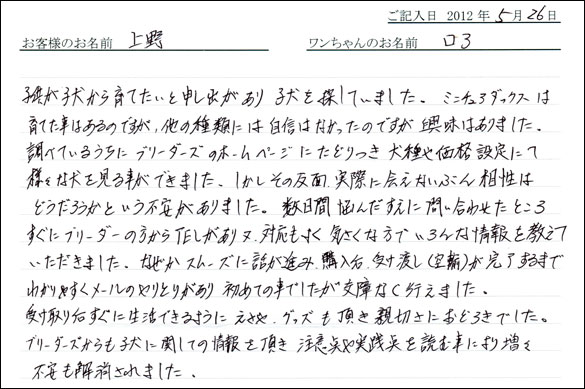 ご記入日 2012年 5月 26日
お客様のお名前 上野 ワンちゃんのお名前 ロ3
子供が子犬から育てたいと申し出があり 子犬を探していました。ミニチュアダックスは
育てた事はあるのですが、他の種類には自信はなかったのですが 興味はありました。
調べているうちに ブリーダーズのホームページにたどりつき 犬種や価格設定にて
様々な犬を見る事ができました。しかしその反面、実際に会えないぶん 相性は
どうだろうかという不安がありました。数日間 悩んだすえに問い合わせたところ
すぐにブリーダーの方からTELがあり 対応もよく 気さくな方で いろんな情報を教えて
いただきました。なぜか スムーズに話が進み 購入 受け渡し(空輸)が完了するまで
わかりやすくメールのやりとりがあり 初めての事でしたが支障なく行えました。
受け取り すぐに生活できるように えさや、グッズも頂き 親切さにおどろきでした。
ブリーダーズからも子犬に関しての情報を頂き 注意点や実践点を読む事により 増々
不安も解消されました。